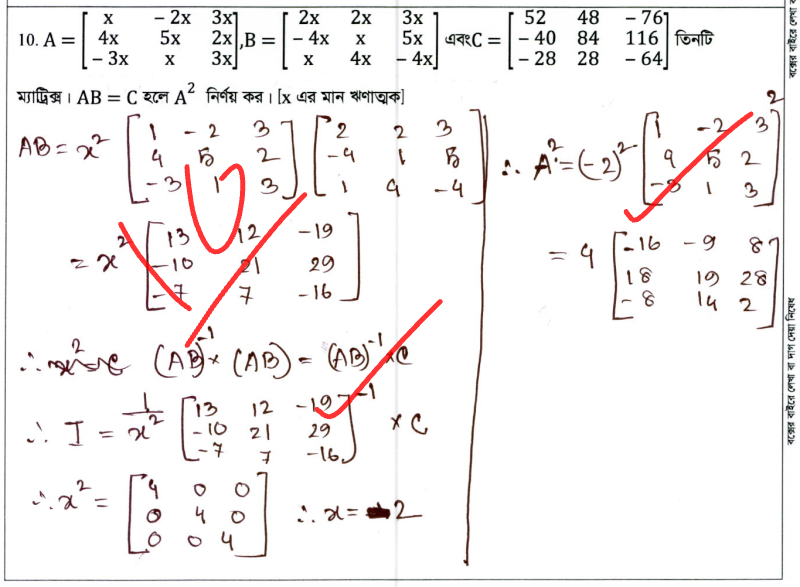 10. A = [x - 2x 3x; 4x 5x 2x; - 3x x 3x], B = [2x 2x 3x; - 4x x 5x; x 4x - 4x] এবংC = [52 48 - 76; - 40 84 116; - 28 28 - 64] তিনটি
ম্যাট্রিক্স। AB = C হলে A² নির্ণয় কর। [x এর মান ঋণাত্মক]
AB = x² [1 -2 3; 4 5 2; -3 1 3] [2 2 3; -4 1 5; 1 4 -4]
= x² [13 12 -19; -10 21 29; -7 7 -16]
(AB)⁻¹ × (AB) = (AB)⁻¹ × C
∴ I = 1/x² [13 12 -19; -10 21 29; -7 7 -16]⁻¹ × C
∴ x² = [4 0 0; 0 4 0; 0 0 4] ∴ x = -2
∴ A² = (-2)² [1 -2 3; 4 5 2; -3 1 3]²
= 4 [-16 -9 8; 18 19 28; -8 14 2]
বক্সের বাইরে লেখা বা দাগ দেয়া নিষেধ